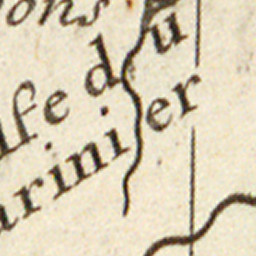 ons
lse du
arinier